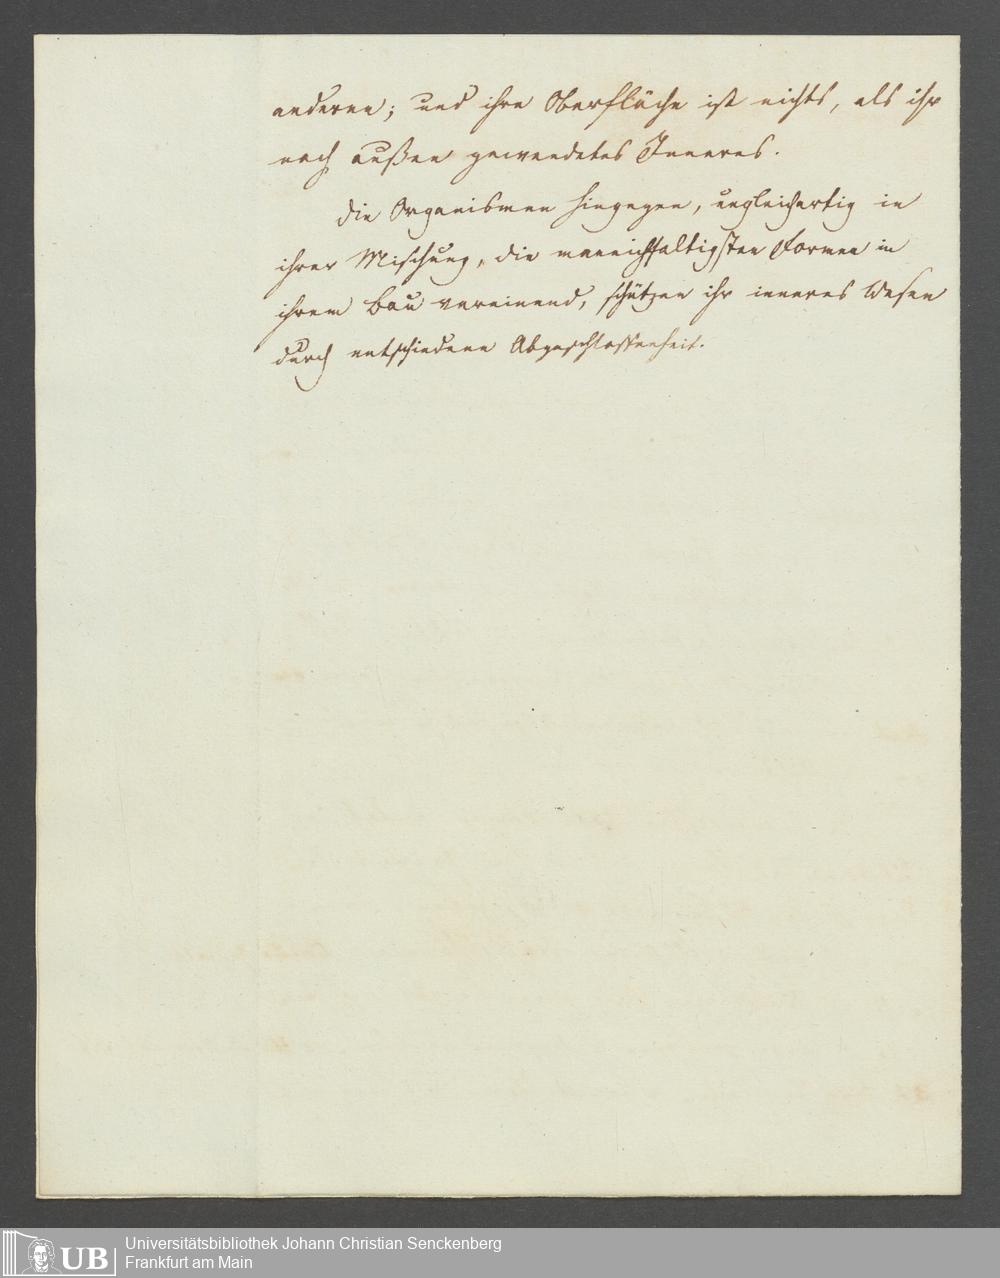 anderen; und ihre Oberfläche ist nichts, als ihr
nach außen gewendetes Inneres.
Die Organismen hingegen, ungleichartig in
ihrer Mischung, die mannichfaltigsten Formen in
ihrem Bau vereinend, schützen ihr inneres Wesen
durch entschiedene Abgeschlossenheit.
UB
Universitätsbibliothek Johann Christian Senckenberg
Frankfurt am Main